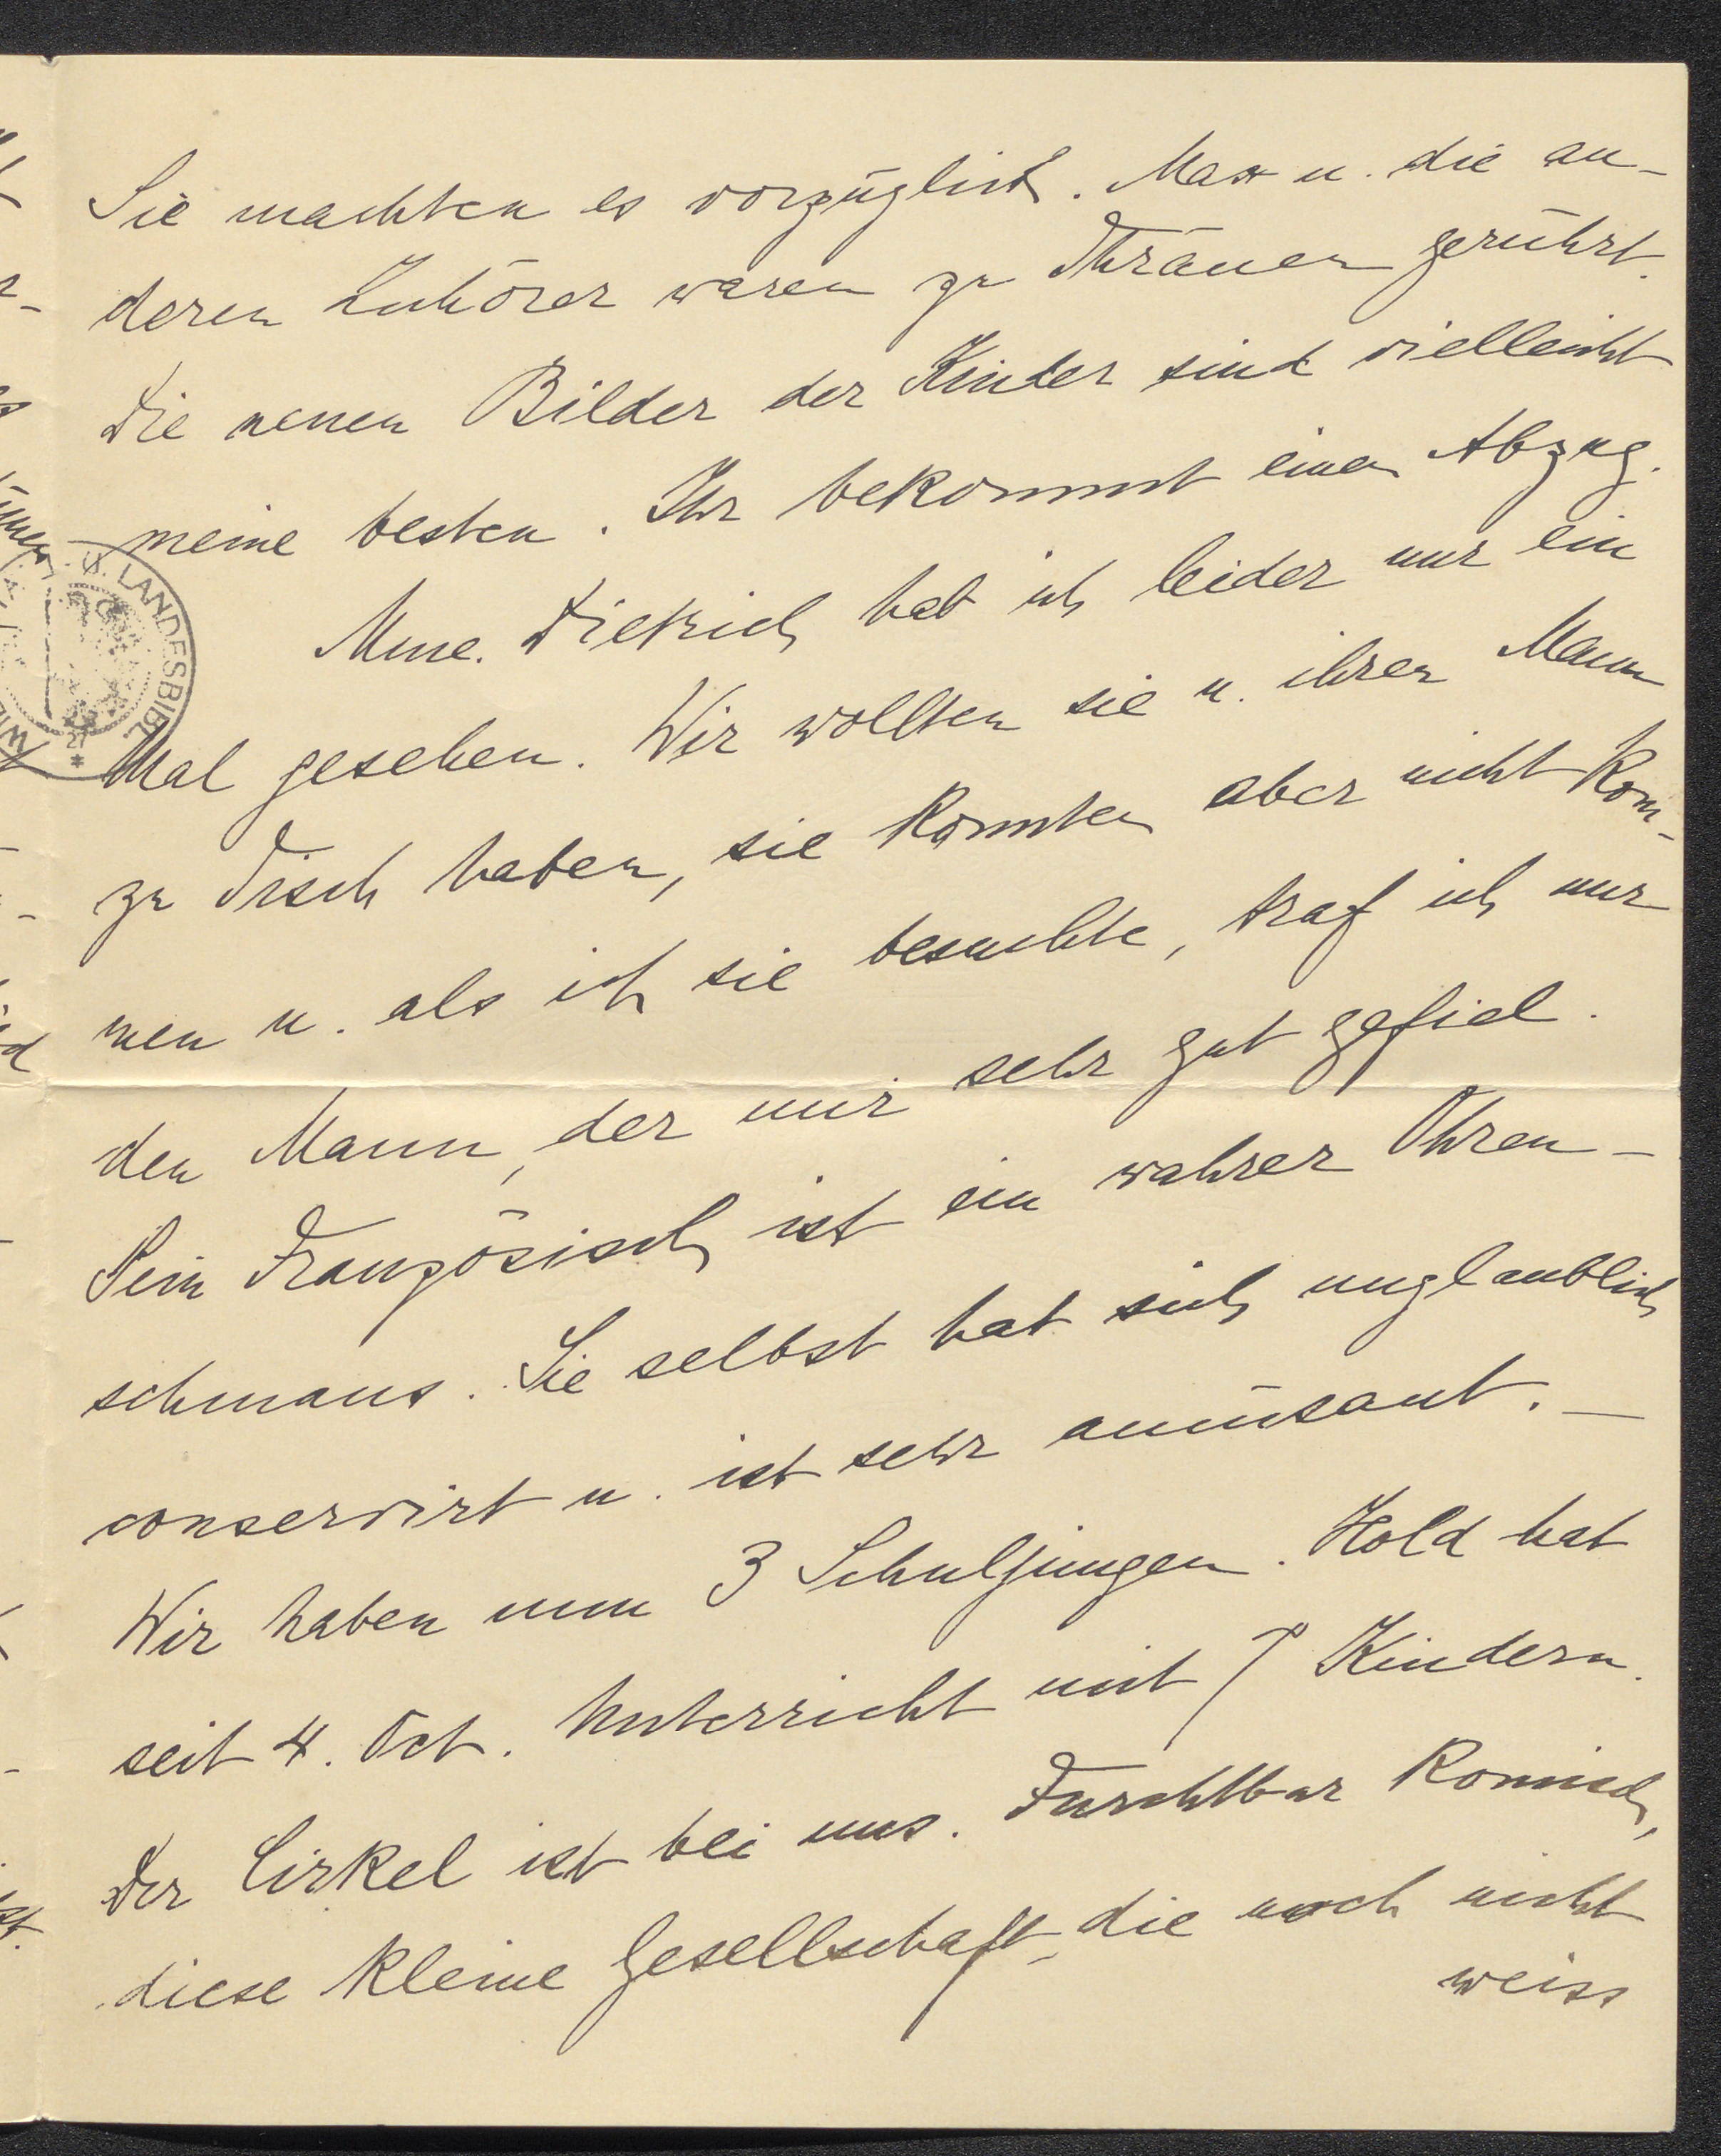 Sie machten es vorzüglich. Max u. die an-
deren Zuhörer waren zu Thränen gerührt.
Die neuen Bilder der Kinder sind vielleicht
meine besten. Ihr bekommt einen Abzug.
Mme. Dietrich hab ich leider nur ein
Mal gesehen. Wir wollten sie u. ihren Mann
zu Tisch haben, sie konnten aber nicht kom-
men u. als ich sie besuchte, traf ich nur
den Mann, der mir sehr gut gefiel.
Sein Französisch ist ein wahrer Ohren-
schmaus. Sie selbst hat sich unglaublich
conservirt u. ist sehr amüsant. —
Wir haben nun 3 Schuljungen. Hold hat
seit 4. Oct. Unterricht mit 7 Kindern.
Der Cirkel ist bei uns. Furchtbar komisch,
diese kleine Gesellschaft, die noch nicht
weiss
U. LANDESBIBL.